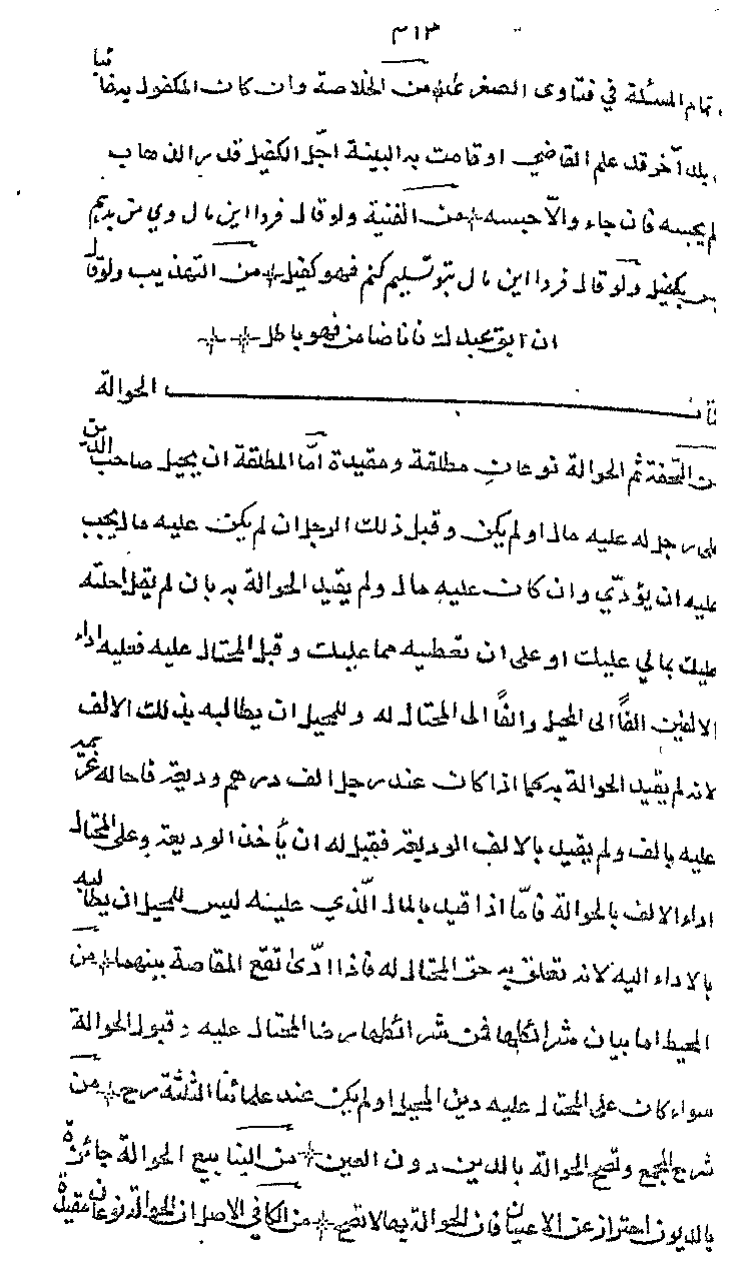 ٣١٣
تمام المسئلة في فتاوى الصغرى من الخلاصة وان كان المكفول به غائبا
بلد آخر قد علم القاضي او قامت به البينة اجل الكفيل قدر الذهاب
لم يحبسه فان جاء والّا حبسه من القنية ولو قال فردا اين مال وي من بديم
بكفيل ولو قال فردا اين مال بتو تسليم كنم فهو كفيل من التهذيب ولو قال
ان ابق عبدك فانا ضامن فهو باطل
الحوالة
من التحفة ثم الحوالة نوعان مطلقة ومقيدة امّا المطلقة ان يحيل صاحب الدين
على رجل له عليه مال او لم يكن وقبل ذلك الرجل ان لم يكن عليه مال يجب
عليه ان يؤدّي وان كان عليه مال ولم يقيد الحوالة به بان لم يقل احلته
عليك بمالي عليك او على ان تعطيه مما عليك وقبل المحتال عليه فعليه اداء
الالفين الفًا الى المحيل والفًا الى المحتال له وللمحيل ان يطالبه بذلك الالف
لانه لم يقيد الحوالة به كما اذا كان عند رجل الف درهم وديعة فاحاله غريمه
عليه بالف ولم يقيد بالالف الوديعة فقبل له ان يأخذ الوديعة وعلى المحتال
اداء الالف بالحوالة فامّا اذا قيد بالمال الّذي عليه ليس للمحيل ان يطالبه
بالاداء اليه لانه تعلق به حق المحتال له فاذا ادّى تقع المقاصة بينهما من
المحيط اما بيان شرائطها فمن شرائطها رضا المحتال عليه وقبول الحوالة
سواء كان على المحتال عليه دين المحيل او لم يكن عند علمائنا الثلثة رح من
شرح المجمع وتصح الحوالة بالدين دون العين من الينابيع الحوالة جائزة
بالديون احتراز عن الاعيان فان الحوالة بها لا تصح من الكافي الاصل ان الحوالة نوعان مقيدة